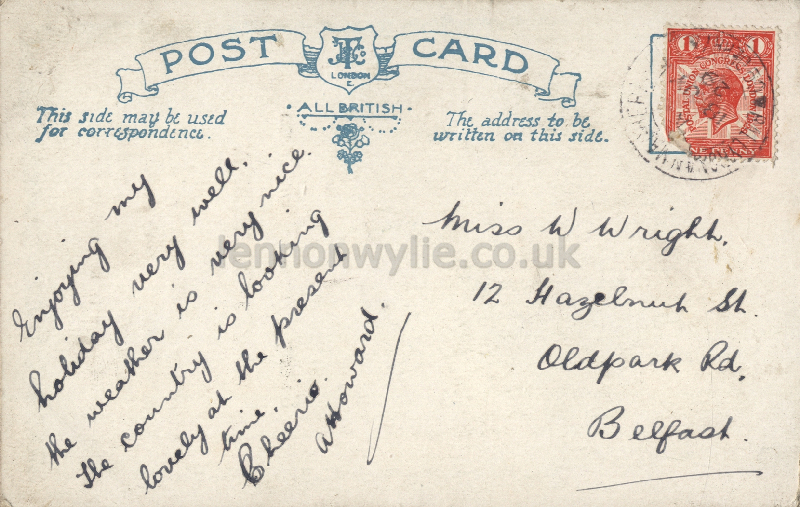 POST CARD
LONDON
E.
ALL BRITISH
This side may be used
for correspondence.
The address to be
written on this side.
1 1
POSTAL UNION CONGRESS LONDON
ONE PENNY
Enjoying my
holiday very well.
the weather is very nice.
The country is looking
lovely at the present
time.
Cheerio.
A Howard.
Miss W Wright.
12 Hazelnut St.
Oldpark Rd,
Belfast.
lennonwylie.co.uk